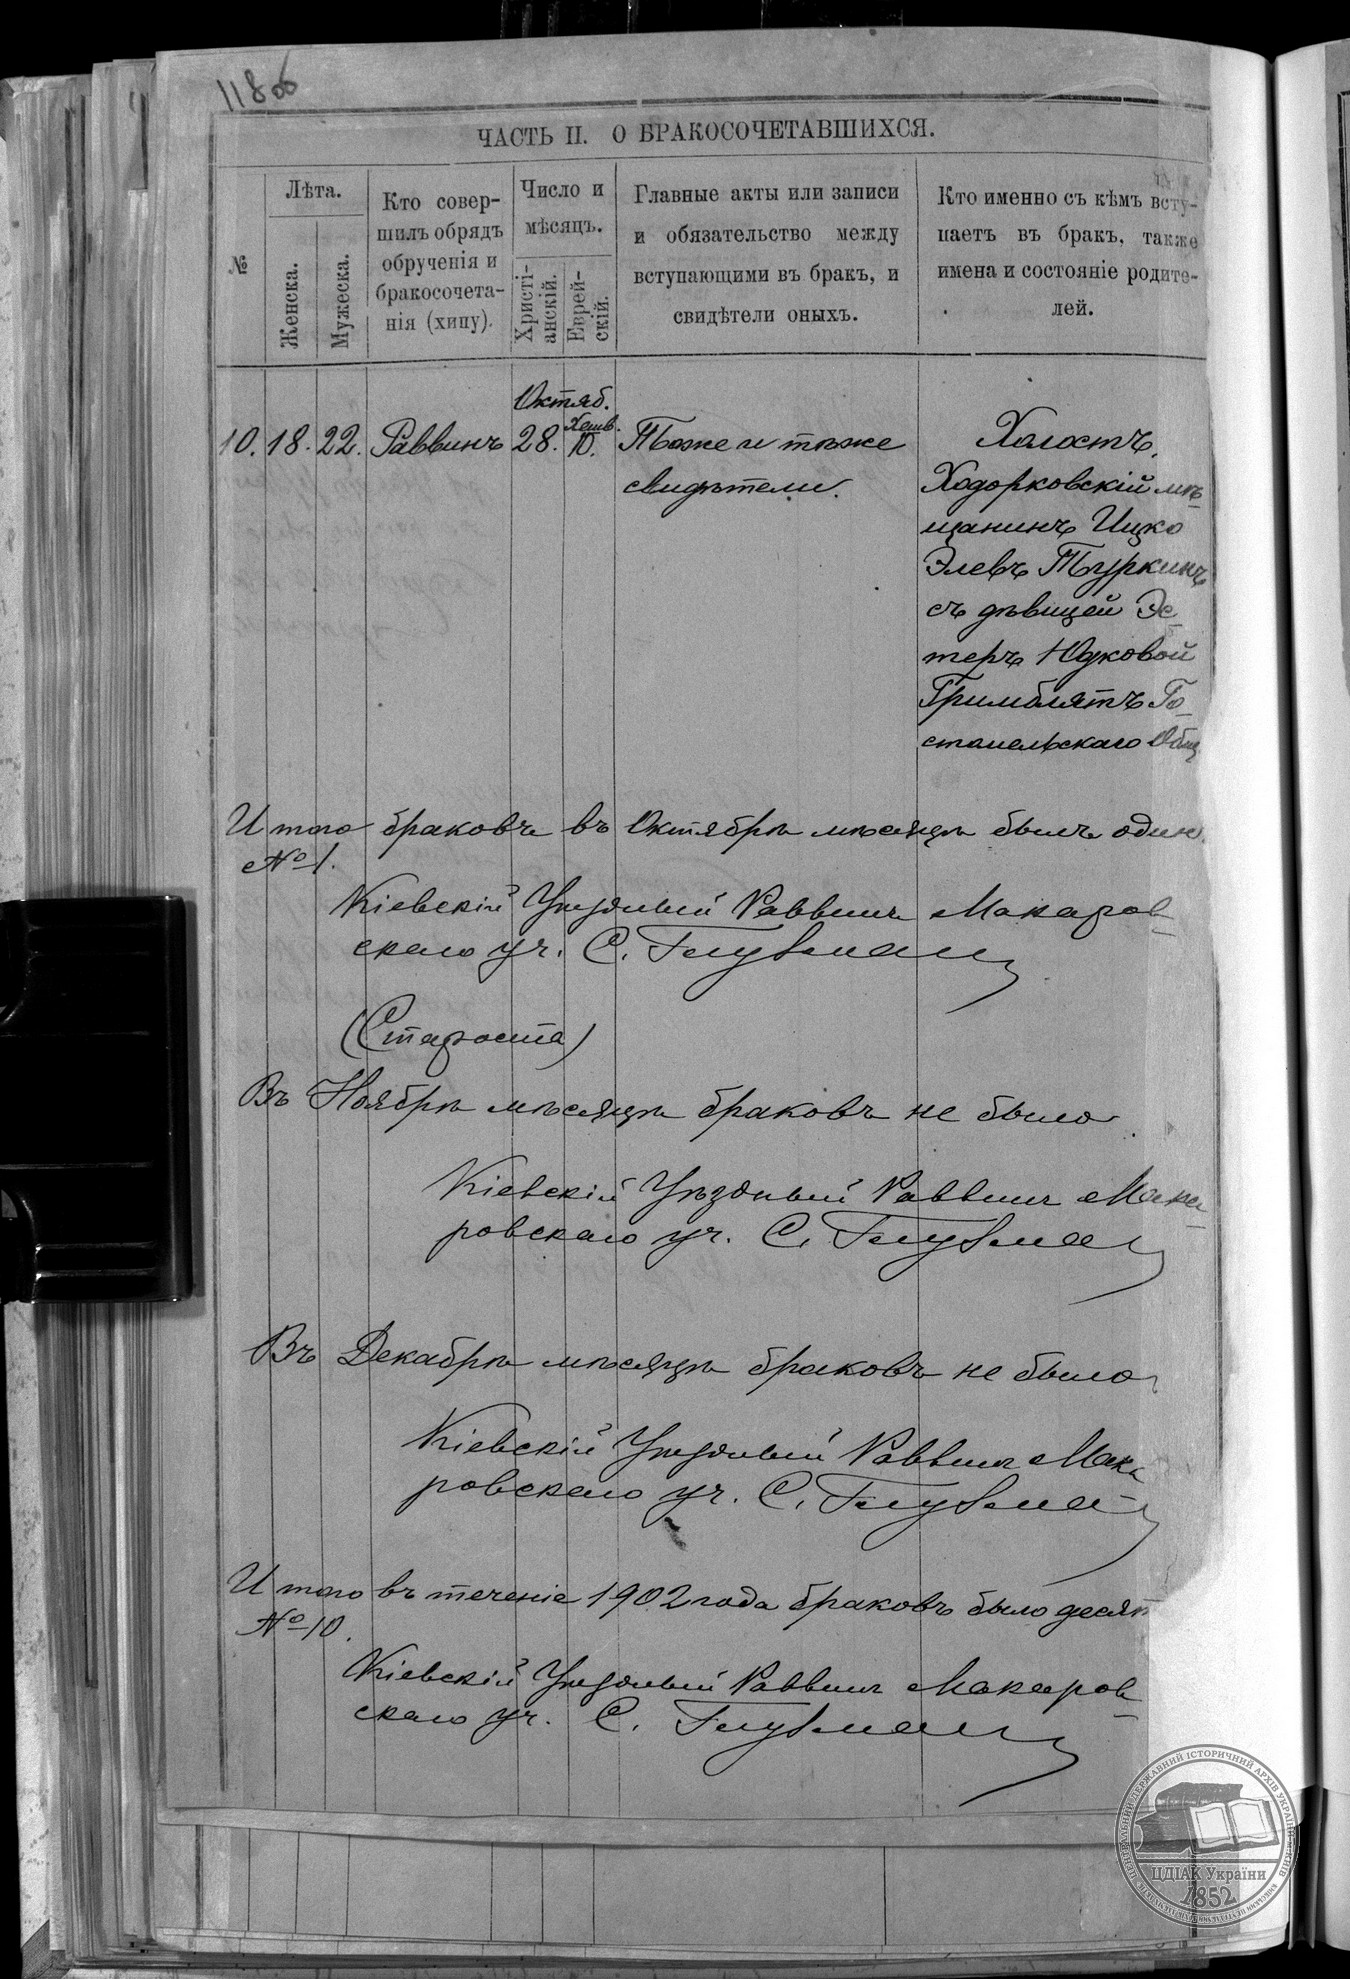 118об
ЧАСТЬ II. О БРАКОСОЧЕТАВШИХСЯ.
№
Лѣта.
Женска.
Мужеска.
Кто совер-
шилъ обрядъ
обрученія и
бракосочета-
нія (хипу).
Число и
мѣсяцъ.
Христі-
анскій.
Еврей-
скій.
Главные акты или записи
и обязательство между
вступающими въ бракъ, и
свидѣтели оныхъ.
Кто именно съ кѣмъ всту-
паетъ въ бракъ, также
имена и состояніе родите-
лей.
Октяб.
Хешв.
10. 18. 22. Раввинъ 28. 10. Тѣже и тѣже
свидѣтели.
Холостъ,
Ходорковскій мѣ-
щанинъ Ицко
Элевъ Туркинъ
съ дѣвицей Эс-
теръ Юдковой
Гримблятъ Го-
стомельскаго Общ.
Итого браковъ въ Октябрѣ мѣсяцѣ былъ один.
№ 1.
Кіевскій Уѣздный Раввинъ Макаров-
скаго уч. С. Глузман
(Староста)
Въ Ноябрѣ мѣсяцѣ браковъ не было
Кіевскій Уѣздный Раввинъ Мака-
ровскаго уч. С. Глузман
Въ Декабрѣ мѣсяцѣ браковъ не было
Кіевскій Уѣздный Раввинъ Мака
ровскаго уч. С. Глузман
Итого въ теченіе 1902 года браковъ было десят
№ 10.
Кіевскій Уѣздный Раввинъ Макаров-
скаго уч. С. Глузман
ЦЕНТРАЛЬНИЙ ДЕРЖАВНИЙ ІСТОРИЧНИЙ АРХІВ УКРАЇНИ, М. КИЇВ
ЦДІАК України
1852